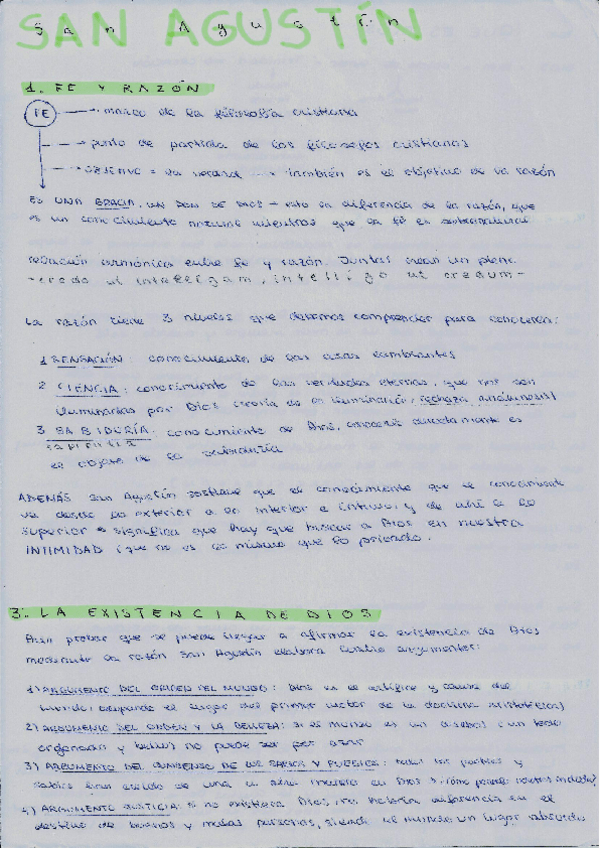 SAN AGUSTÍN
San Agustín
1. FE Y RAZÓN
FE → marco de la filosofía cristiana
→ punto de partida de los filósofos cristianos
→ objetivo = la verdad → también es el objetivo de la razón
ES UNA GRACIA, un don de Dios → esto en diferencia de la razón, que
es un conocimiento natural mientras que la fe es sobrenatural
relación armónica entre fe y razón. Juntas crean un pleno
- credo ut intelligam, intelligo ut credam -
La razón tiene 3 niveles que debemos comprender para conocerla:
1 SENSACIÓN: conocimiento de las cosas cambiantes
2 CIENCIA: conocimiento de las verdades eternas, que nos son
iluminadas por Dios (teoría de la iluminación,
3 SABIDURÍA: conocimiento de Dios,
es objeto de la sabiduría
ADEMÁS San Agustín sostiene que el conocimiento
va desde lo exterior a lo interior e íntimo, y de ahí a lo
superior → significa que hay que buscar a Dios en nuestra
INTIMIDAD (que no es lo mismo que lo privado.
3. LA EXISTENCIA DE DIOS
Para probar que se puede llegar a afirmar la existencia de Dios
mediante la razón San Agustín elabora cuatro argumentos:
1) ARGUMENTO DEL ORIGEN DEL MUNDO: Dios es el artífice y causa del
mundo, ocupando el lugar del primer motor de la doctrina aristotélica)
2) ARGUMENTO DEL ORDEN Y LA BELLEZA: si el mundo es un
y bello) no puede ser por azar
3) ARGUMENTO DEL CONSENSO DE LOS SABIOS Y PUEBLOS: todos los pueblos y
sabios han creído de una u otra manera en Dios
4) ARGUMENTO JUSTICIA: si no existiera Dios no habría diferencia en el
destino de buenas y malas personas, siendo el mundo un lugar absurdo